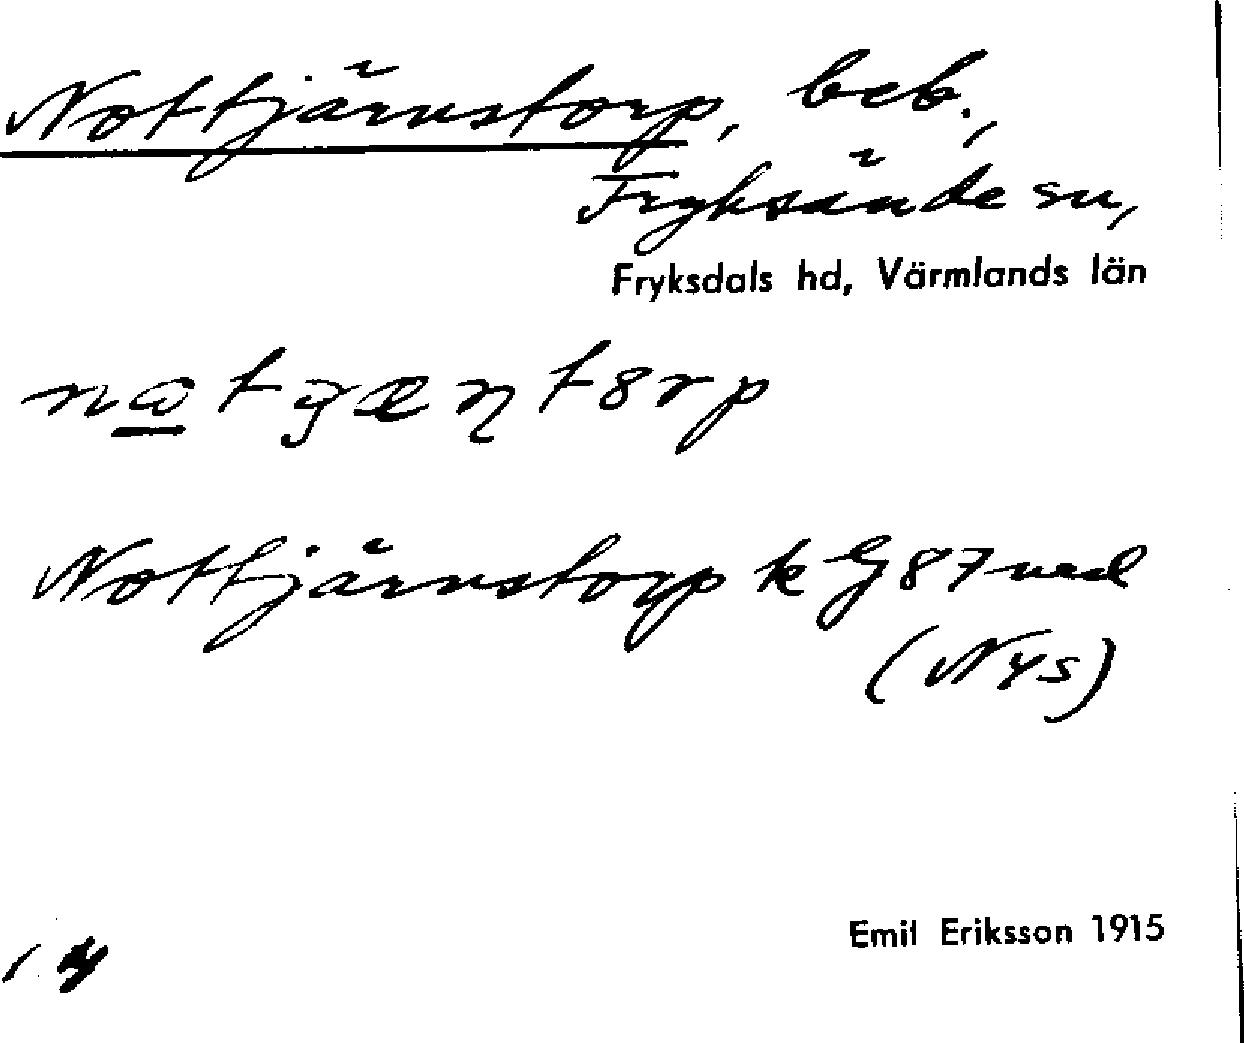 Nottjärnstorp, beb.,
Fryksände sn,
Fryksdals hd, Värmlands län
Nottjärnstorp k G 87 ned
(NYS)
Emil Eriksson 1915